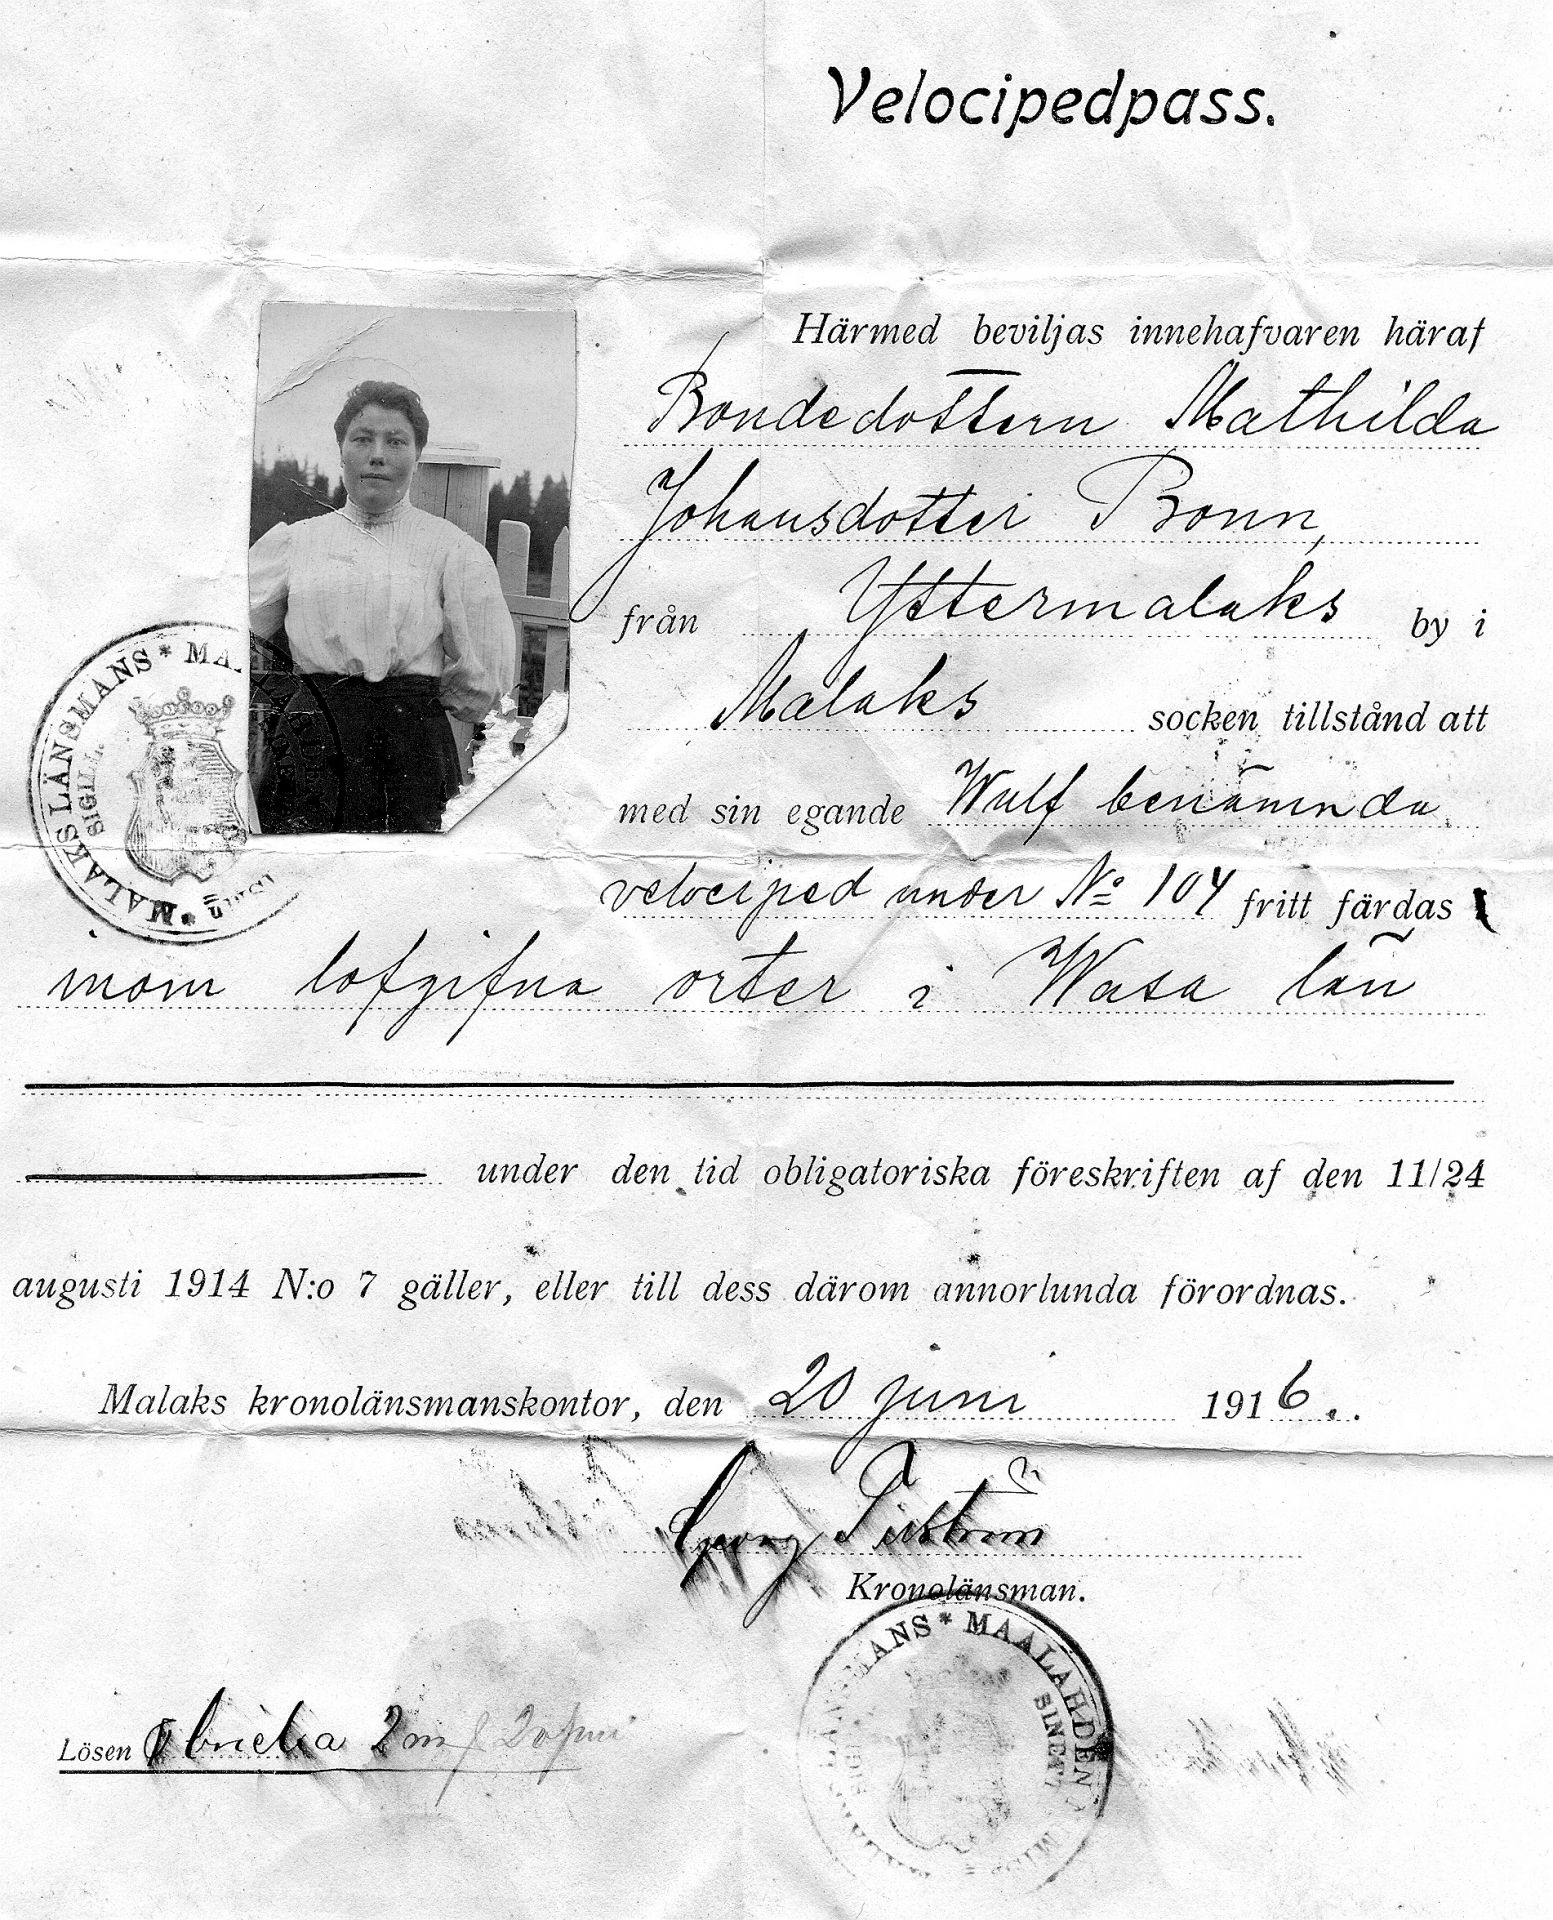 Velocipedpass.
Härmed beviljas innehafvaren häraf
Bondedottern Mathilda
Johansdotter Bonn,
från Yttermalaks by i
Malaks socken tillstånd att
med sin egande Wulf benämnda
velociped under No 104 fritt färdas
inom lofgifna orter i Wasa län
under den tid obligatoriska föreskriften af den 11/24
augusti 1914 N:o 7 gäller, eller till dess därom annorlunda förordnas.
Malaks kronolänsmanskontor, den 20 juni 1916.
Georg
Kronolänsman.
MALAKS LÄNSMANS * MAALAHDEN
SIGILL
LÄNSMANS * MAALAHDEN
SINETTI
Lösen 2 mk 20 pni